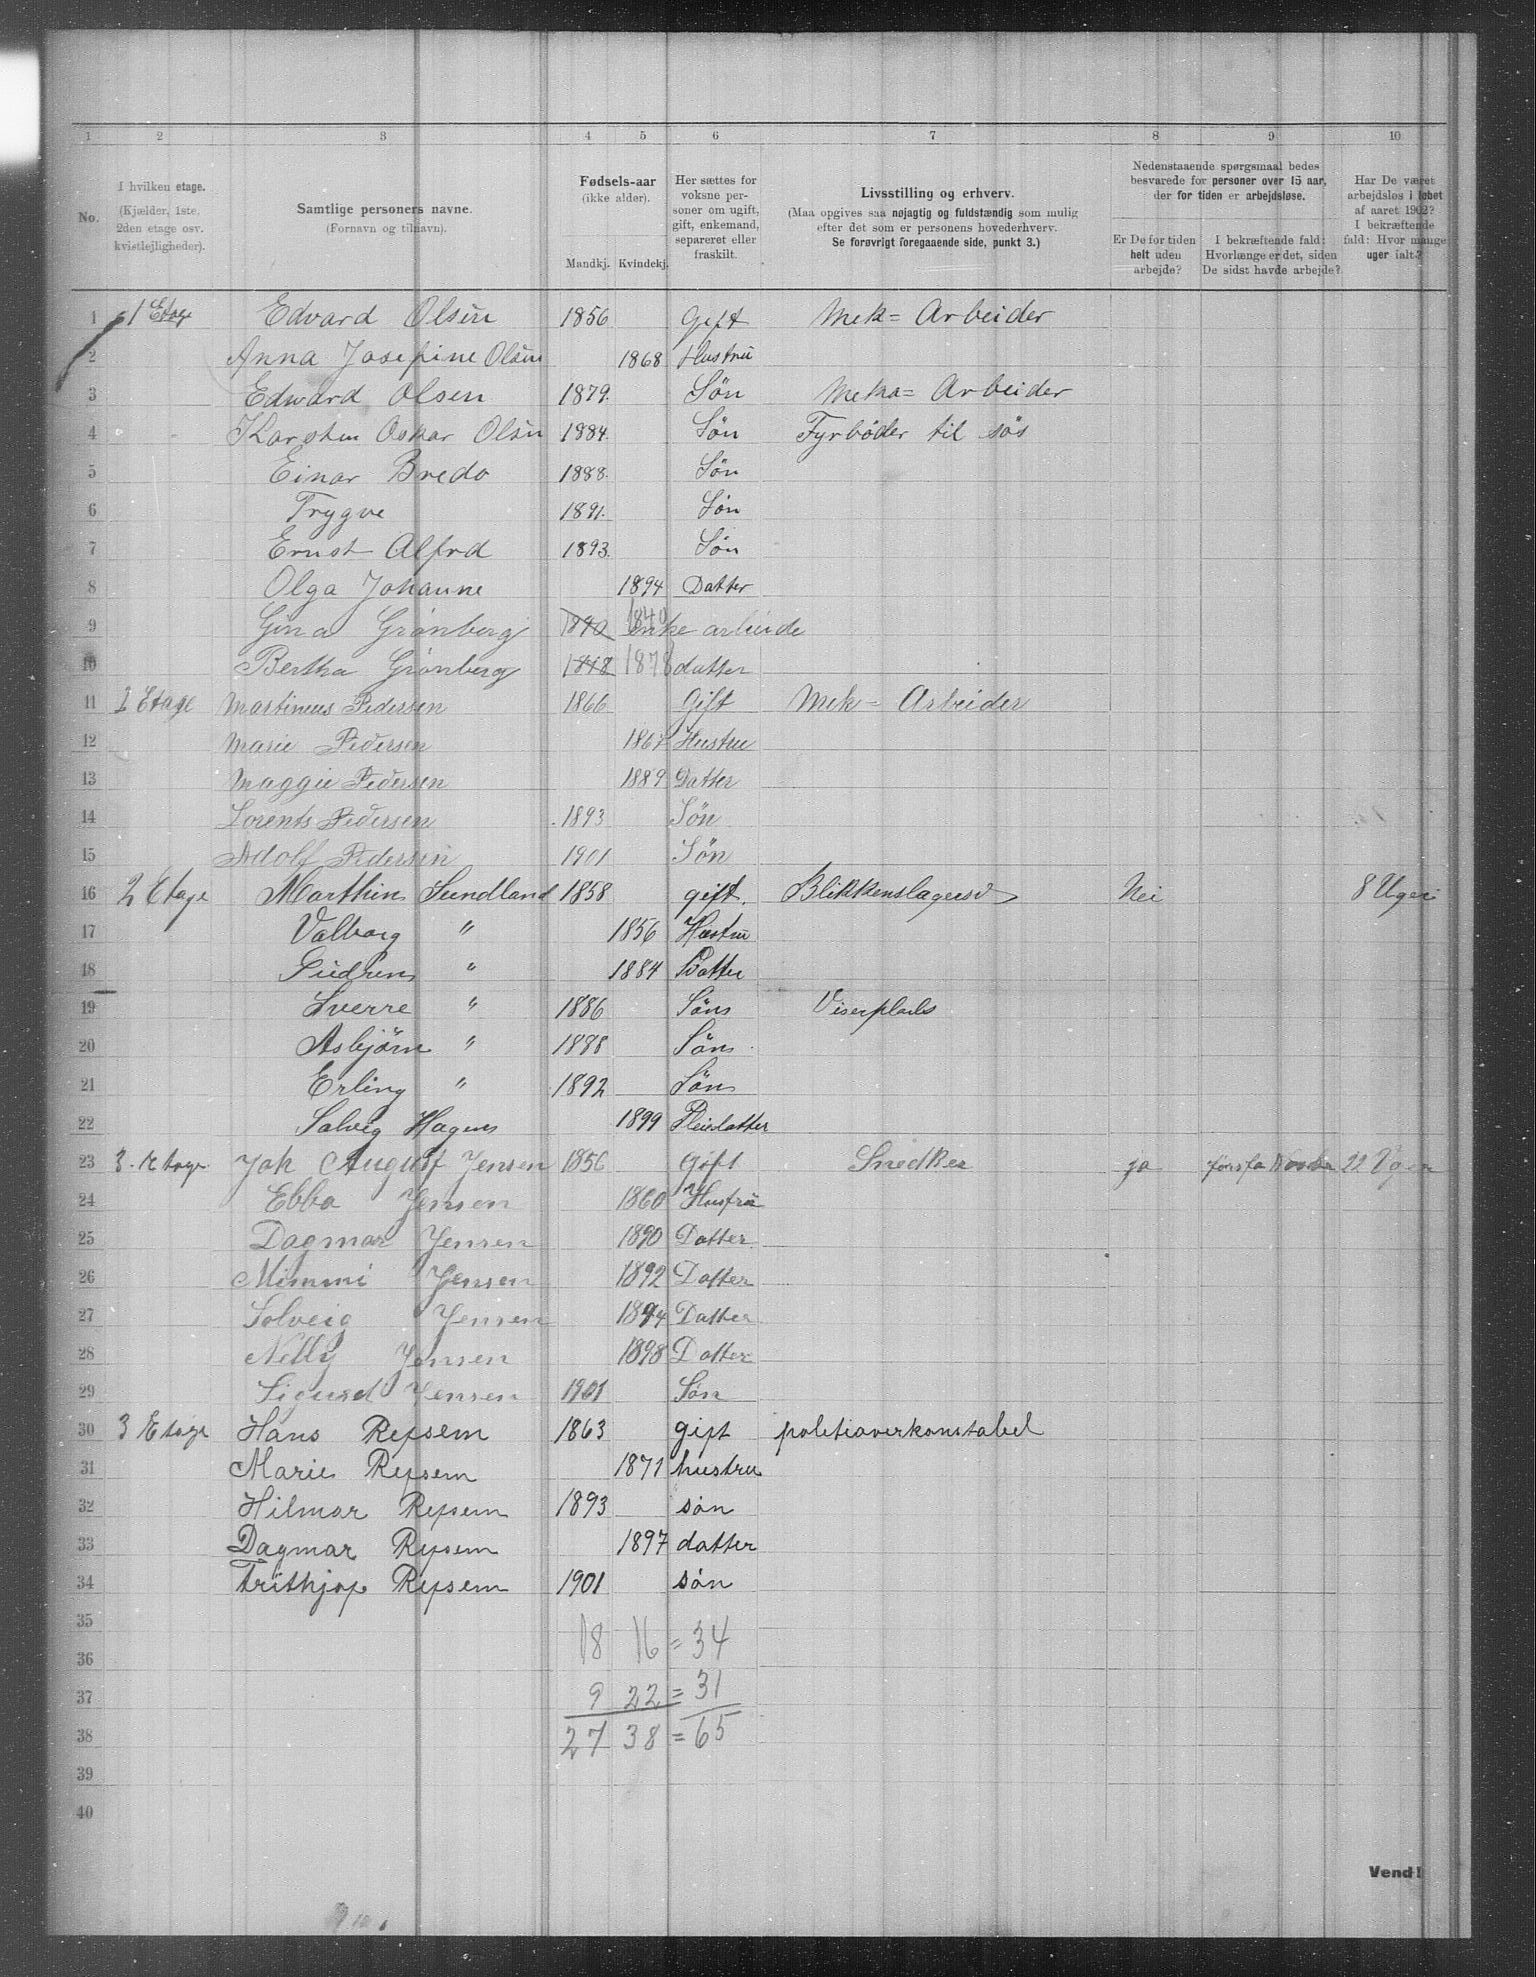 1 2 3 4 5 6 7 8 9 10
No.
I hvilken etage.
(Kjælder, 1ste, 2den etage osv. kvistlejligheder).
Samtlige personers navne.
(Fornavn og tilnavn).
Fødsels-aar
(ikke alder).
Mandkj. Kvindekj.
Her sættes for voksne personer om ugift, gift, enkemand, separeret eller fraskilt.
Livsstilling og erhverv.
(Maa opgives saa nøjagtig og fuldstændig som mulig efter det som er personens hovederhverv.
Se forøvrigt foregaaende side, punkt 3.)
Nedenstaaende spørgsmaal bedes besvarede for personer over 15 aar, der for tiden er arbejdsløse.
Er De for tiden helt uden arbejde?
I bekræftende fald: Hvorlænge er det, siden De sidst havde arbejde?
Har De været arbejdsløs i løbet af aaret 1902? I bekræftende fald: Hvor mange uger ialt?
1 1 Etag Edvard Olsen 1856 Gift Mek= Arbeider
2 Anna Josefine Olsen 1868 Hustru
3 Edward Olsen 1879. Søn Meka= Arbeider
4 Karsten Oskar Olsen 1884. Søn Fyrbøder til søs
5 Einar Bredo 1888. Søn
6 Trygve 1891. Søn
7 Ernst Alfrd 1893. Søn
8 Olga Johanne 1894 Datter
9 Gina Grønberg 1840 1840 enke arbeide
10 Bertha Grønberg 1848 1878 datter
11 1 Etage Martineus Pedersen 1866 Gift Mek= Arbeider
12 Marie Pedersen 1867 Hustru
13 Maggie Pedersen 1889 Datter
14 Lorents Pedersen 1893 Søn
15 Adolf Pedersen 1901 Søn
16 2 Etage Marthin Sundland 1858 gift. Blikkenslagersv Nei 8 Uger
17 Valborg " 1856 Hustru
18 Gudrun " 1884 Datter
19 Sverre " 1886 Søn Viserplads
20 Asbjørn " 1888 Søn
21 Erling " 1892 Søn
22 Solveig Hagen 1899 Pleiedatter
23 3. Etage. Joh August Jensen 1856 Gift Snedker ja 22 Uger
24 Ebba Jensen 1860 Hustru
25 Dagmar Jensen 1890 Datter
26 Mimmi Jensen 1892 Datter
27 Solveig Jensen 1894 Datter
28 Nelly Jensen 1898 Datter
29 Sigurd Jensen 1901 Søn
30 3 Etage Hans Repsem 1863 gift politioverkonstabel
31 Marie Repsem 1871 hustru
32 Hilmar Repsem 1893 søn
33 Dagmar Repsem 1897 datter
34 Frithjof Repsem 1901 søn
35
18 16 = 34
36
37 9 22 = 31
38 27 38 = 65
39
40
Vend!